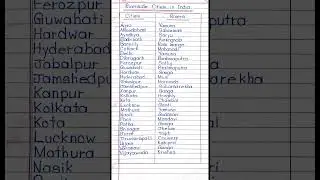 Riverside Cities in India
Cities Rivers
Agra Yamuna
Ahmedabad Sabarmati
Ayodhya Saryu
Badrinath Alaknanda
Bareilly Ram Ganga
Cuttack Mahanadi
Delhi Yamuna
Dibrugarh Brahmaputra
Ferozpur Satluj
Guwahati Brahmaputra
Hardwar Ganga
Hyderabad Musi
Jabalpur Narmada
Jamshedpur Subarnarekha
Kanpur Ganga
Kolkata Hooghly
Kota Chambal
Lucknow Gomti
Mathura Yamuna
Nasik Godavari
Patna Ganga
Srinagar Jhelum
Surat
Cauvery
Ujjain
Varanasi Ganga
Vijayawada Krishna
Ferozpur
Guwahati
Hardwar
Hyderabad
Jabalpur
Jamshedpu
Kanpur
Kolkata
Kota
Lucknow
Mathura
Nasik
rekha